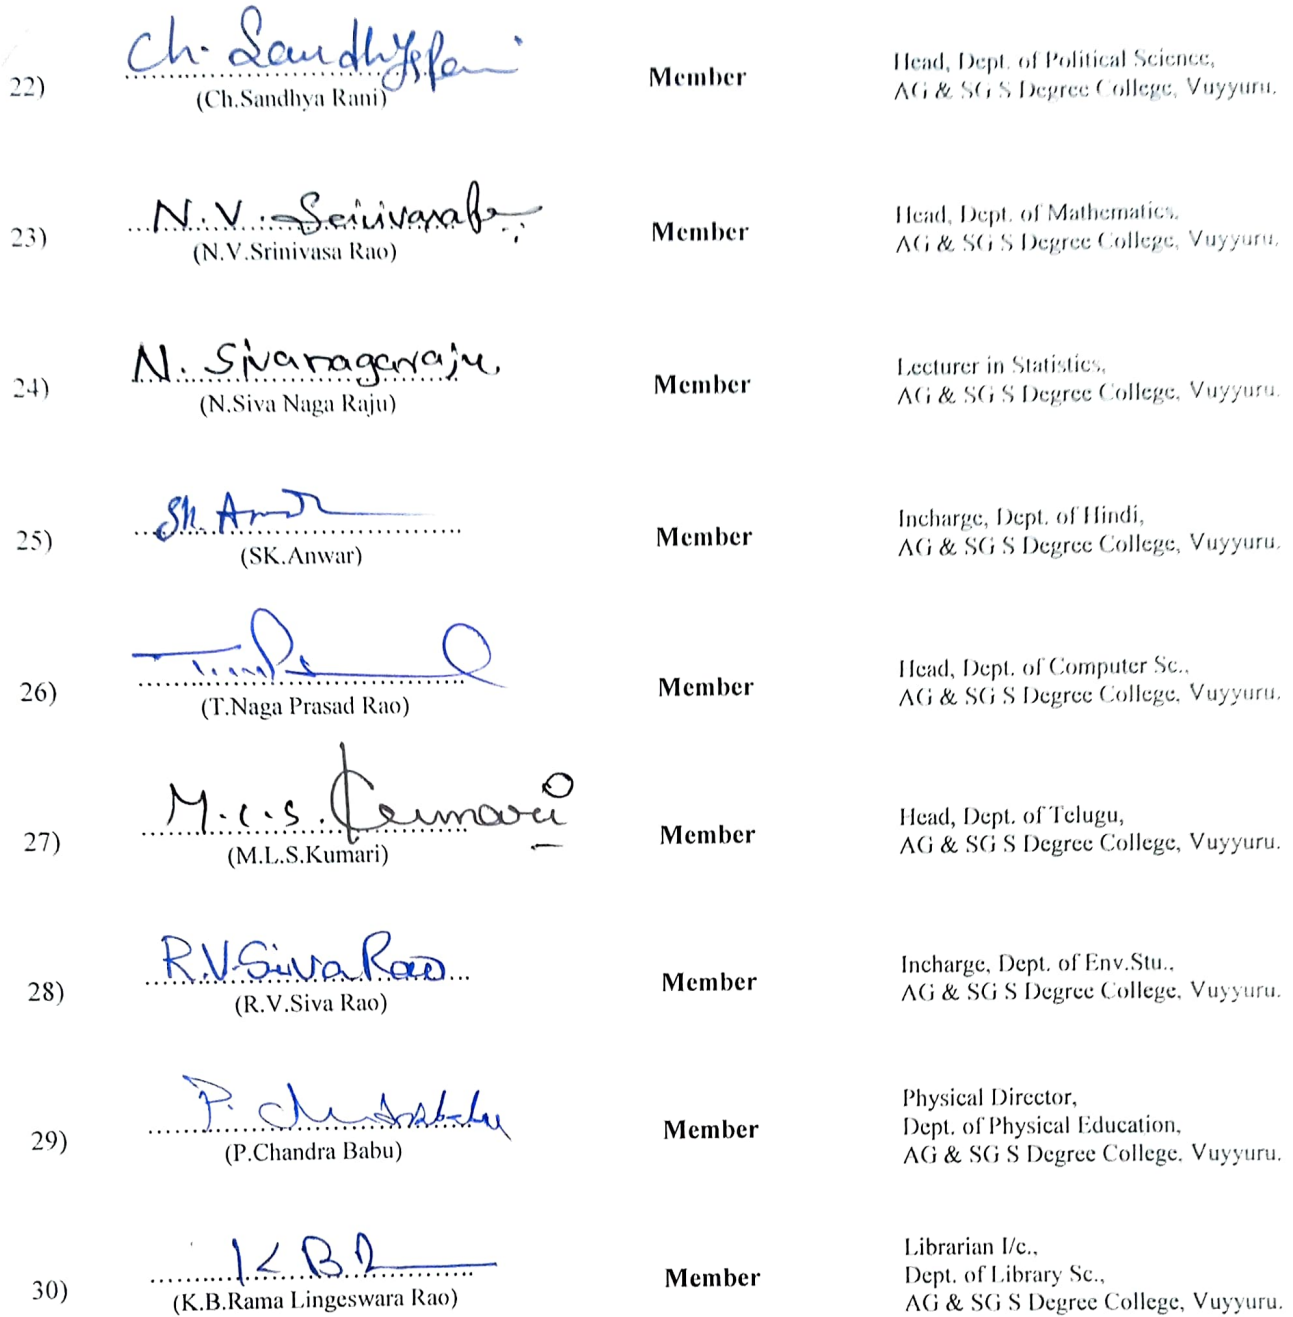 Ch. SandhyaRani
22)
(Ch.Sandhya Rani)
Member
Head, Dept. of Political Science,
AG & SG S Degree College, Vuyyuru.
N.V. Srinivasa
23)
(N.V.Srinivasa Rao)
Member
Head, Dept. of Mathematics,
AG & SG S Degree College, Vuyyuru.
N. Sivanagaraju
24)
(N.Siva Naga Raju)
Member
Lecturer in Statistics,
AG & SG S Degree College, Vuyyuru.
Sk. Anwar
25)
(SK.Anwar)
Member
Incharge, Dept. of Hindi,
AG & SG S Degree College, Vuyyuru.
26)
(T.Naga Prasad Rao)
Member
Head, Dept. of Computer Sc.,
AG & SG S Degree College, Vuyyuru.
M.L.S. Kumari
27)
(M.L.S.Kumari)
Member
Head, Dept. of Telugu,
AG & SG S Degree College, Vuyyuru.
R.V.Siva Rao
28)
(R.V.Siva Rao)
Member
Incharge, Dept. of Env.Stu.,
AG & SG S Degree College, Vuyyuru.
P. Chandrababu
29)
(P.Chandra Babu)
Member
Physical Director,
Dept. of Physical Education,
AG & SG S Degree College, Vuyyuru.
K B R
30)
(K.B.Rama Lingeswara Rao)
Member
Librarian I/c.,
Dept. of Library Sc.,
AG & SG S Degree College, Vuyyuru.